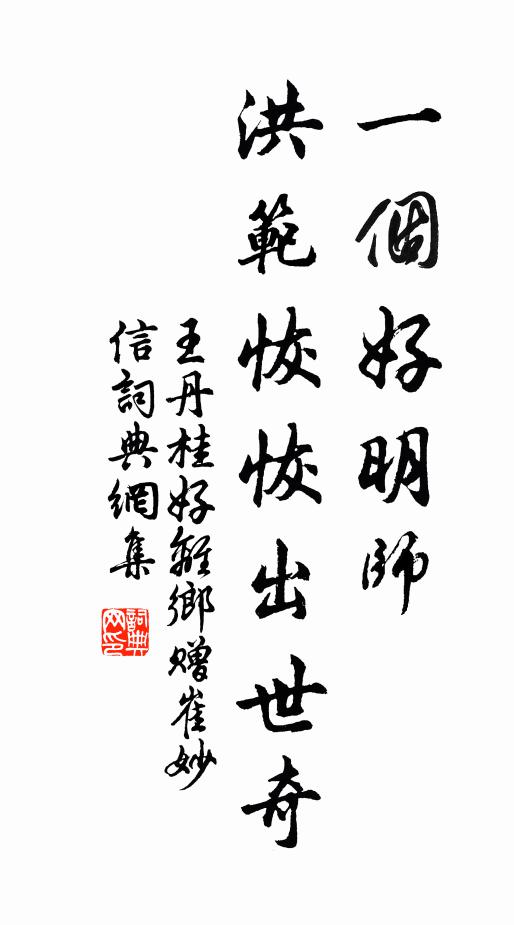 一個好明師
洪範恢恢出世奇
王丹桂好離鄉贈崔妙
信詞典網集
詞典